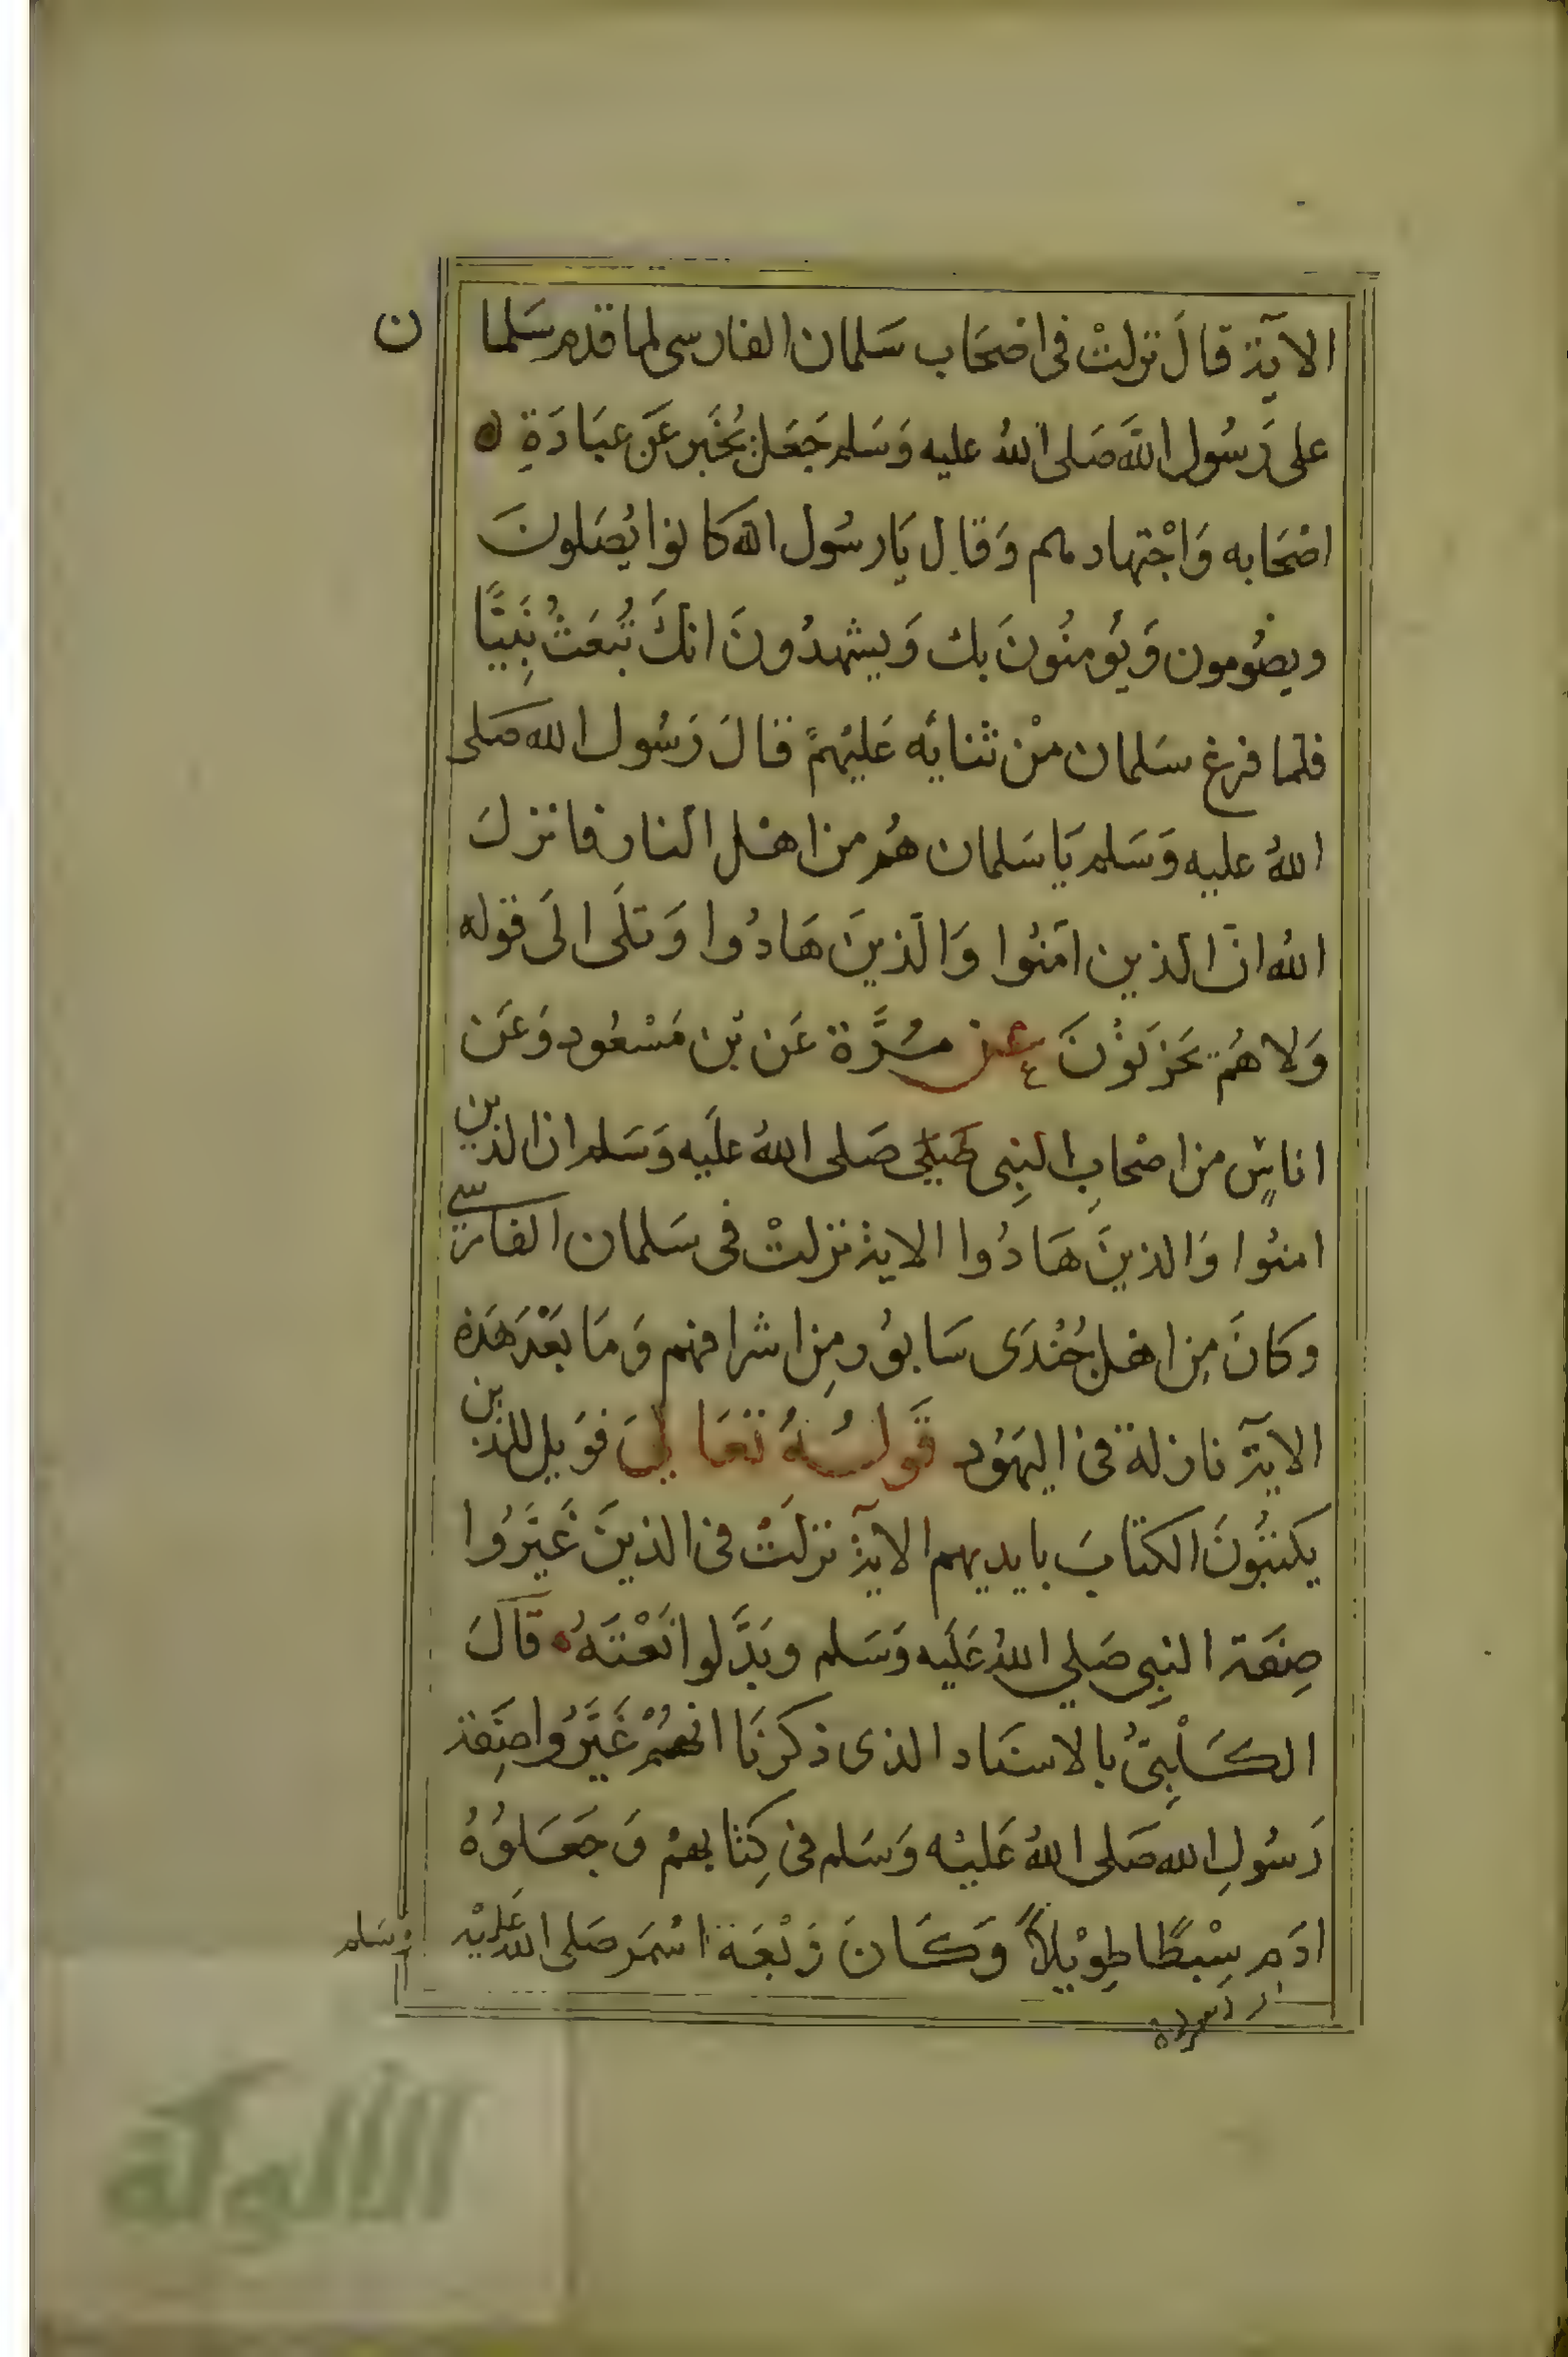 الآية قالَ نزلتْ فى اصْحَاب سَلمان الفارسى لما قدم سَلمان
على رَسُول اللهَ صَلى اللهُ عليه وَسَلم جَعَل يُخْبر عَن عبَادَةِ
اصْحَابه وَاجْتهادهم وَقال يَارسُول الله كانوا يُصَلونَ
ويصُومون وَيُؤمنُونَ بك وَيشهدُونَ انكَ تُبعَثُ نَبِيًّا
فلما فرغ سَلمان منْ ثنايه عَليْهمْ قالَ رَسُول الله صَلى
اللهُ عليه وَسَلم يَا سَلمان هُم من اهْل النار فانزلَ
اللهُ انّ الذين امَنُوا وَالذينَ هَادُوا وَتلَى الَى قوله
وَلا هُمْ يَحْزَنُوْنَ عن مُرَّة عَن بْن مَسْعُود وَعَن
اناسٍ من اصْحابِ النبِى صَلى اللهُ عَليه وَسَلم ان الذين
امنُوا وَالذينَ هَادُوا الاية نزلتْ فى سَلمان الفارسي
وكانَ مِن اهْل جُنْدَى سَابوُر مِن اشرافهم وَمَا بَعْدَ هَذه
الآيَة نازلة فى اليهَوُد قَولُهُ تعَالىَ فوَيل للذين
يكتبُونَ الكتَابَ بايديهم الآية نزلَتْ فى الذينَ غَيَّرُوا
صِفَة النبِى صَلي اللهُ عَليه وَسَلم وبَدَّلوا نَعْتَهُ قالَ
الكَلْبِىُّ بالاسنَاد الذى ذكرنَا انهُمْ غَيَّرُوا صفَة
رَسُولِ الله صَلى اللهُ عَليْه وَسَلم فى كِتابهمْ وَجَعَلوُهُ
ادَم سِبْطًا طِوْيلاً وَكَانَ رَبْعَة اسْمَر صَلى الله عَليْه وسَلم
الألوكة